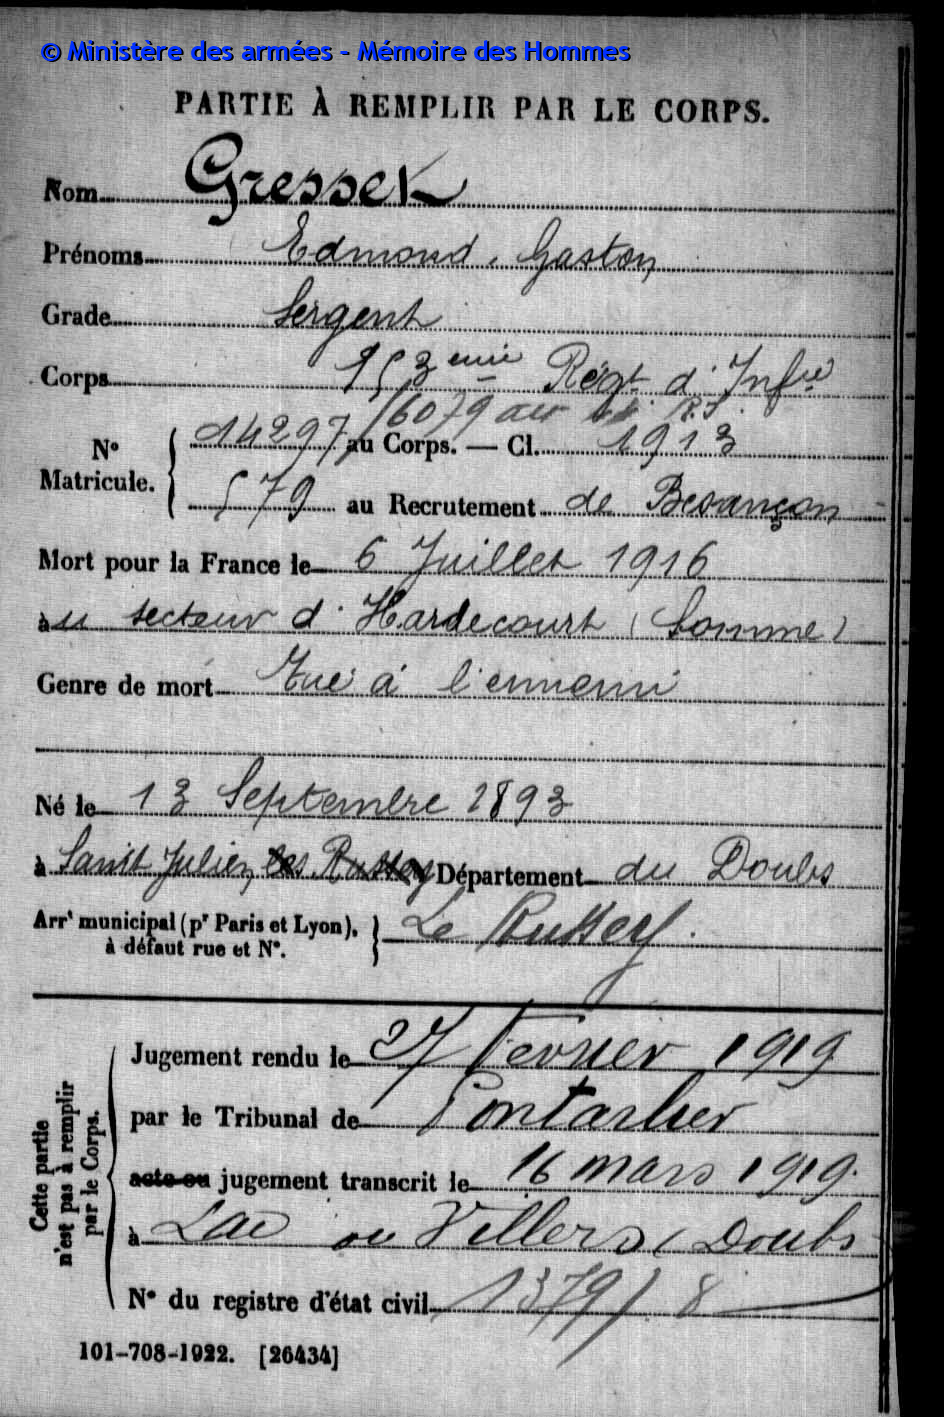 © Ministère des armées - Mémoire des Hommes
PARTIE À REMPLIR PAR LE CORPS.
Nom Gresset
Prénoms Edmond, Gaston
Grade Sergent
Corps 153eme Régt d'Infie
N° Matricule. 14297/6079 au R.I.
au Corps. — Cl. 1913
579 au Recrutement de Besançon
Mort pour la France le 6 Juillet 1916
au secteur d'Hardecourt (Somme)
Genre de mort Tué à l'ennemi
Né le 13 Septembre 1893
à Saint Julien les Russey Département du Doubs
Arrt municipal (pr Paris et Lyon), à défaut rue et N°. Le Russey.
Cette partie n'est pas à remplir par le Corps.
Jugement rendu le 27 Fevrier 1919
par le Tribunal de Pontarlier
acte ou jugement transcrit le 16 mars 1919.
à Lac ou Villers (Doubs
N° du registre d'état civil 1379/8
101-708-1922. [26434]